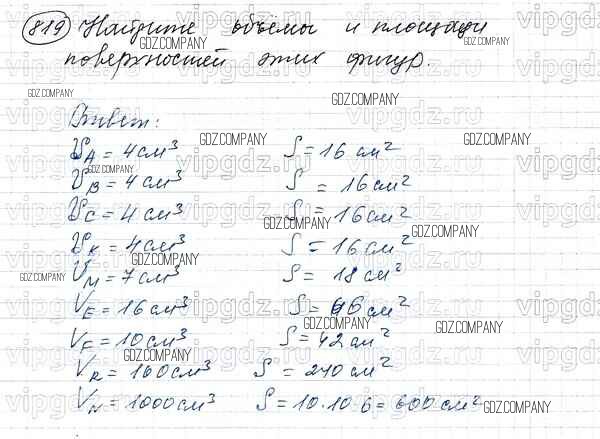 819) Найдите объёмы и площади
поверхностей этих фигур.
Ответ:
V_A = 4 см³ S = 16 см²
V_B = 4 см³ S = 16 см²
V_C = 4 см³ S = 16 см²
V_K = 4 см³ S = 16 см²
V_M = 7 см³ S = 18 см²
V_E = 16 см³ S = 46 см²
V_F = 10 см³ S = 42 см²
V_R = 160 см³ S = 240 см²
V_N = 1000 см³ S = 10·10·6 = 600 см²
GDZ.COMPANY
vipgdz.ru